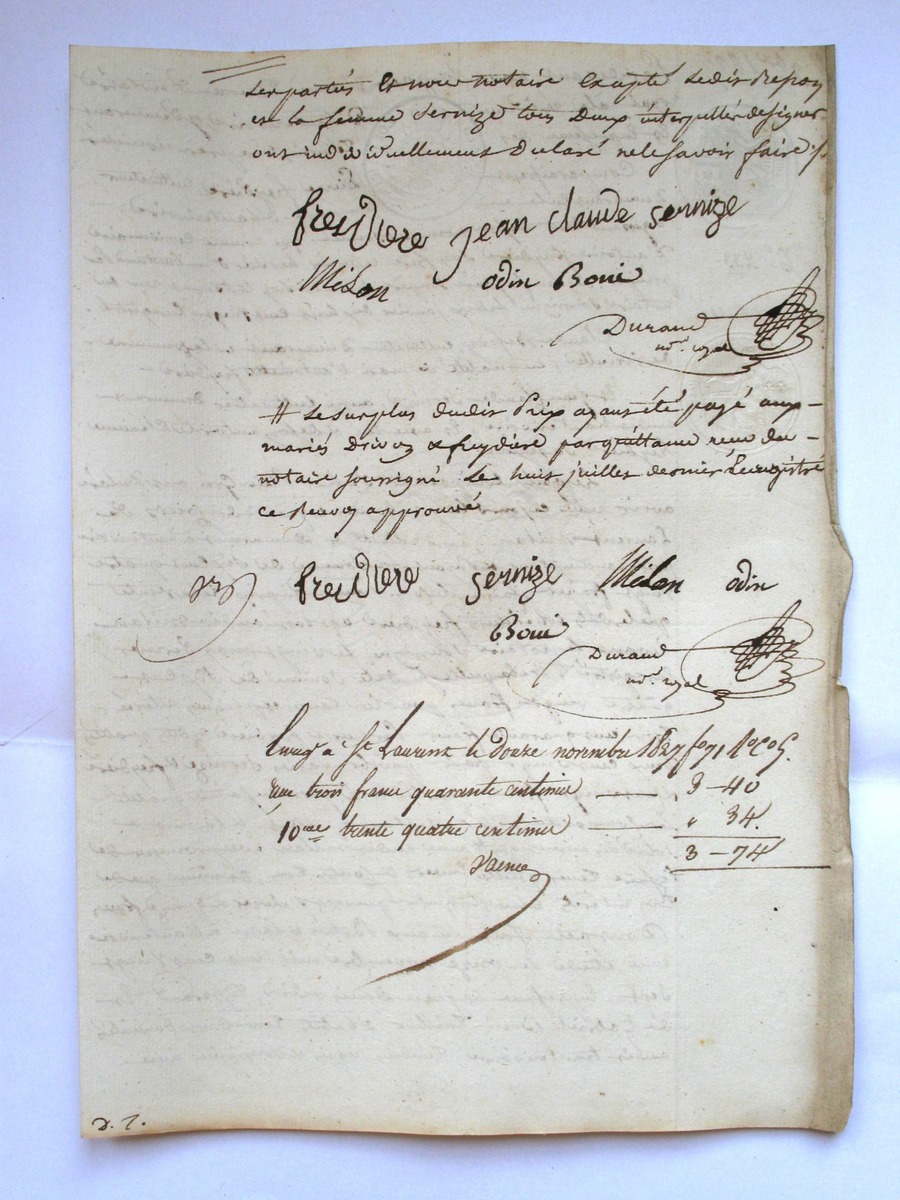 les parties et nous notaire excepté ledit
et la femme Sernize tous deux interpellés de signer
ont individuellement declaré ne le savoir faire
freydiere jean claude sernize
Milon odin Boui
Durand
not. royal
# le surplus dudit Prix ayant été payé aux
mariés Drivon & freydiere par quittance recue du
notaire soussigné le huit juillet dernier Enregistré
ce Renvoi approuvé
freydiere sernize Milon odin
Boui
Durand
not. royal
Enreg. à St Laurent le douze novembre 1827 fo 71
reçu trois francs quarante centimes — 3 - 40
10me trente quatre centimes — " 34
3 - 74
D. 7.